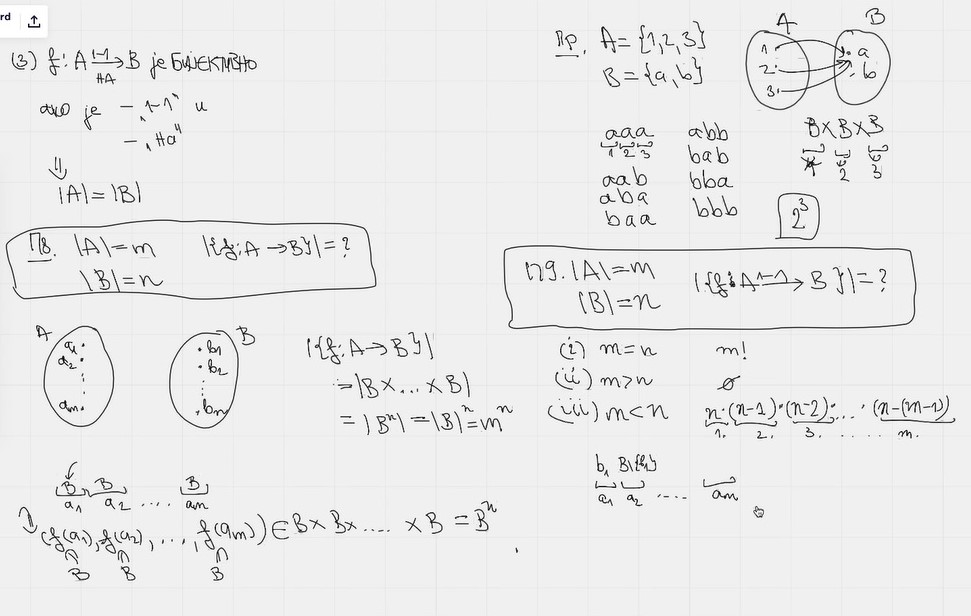 rd
(3) f: A 1-1→ B је БИЈЕКТИВНО
НА
ако је – „1-1" и
– „на"
⇓
|A|=|B|
П8. |A|=m |{f: A→B}|=?
|B|=n
A B
a1 b1
a2 b2
⋮ ⋮
am bn
|{f: A→B}|
=|B×...×B|
=|Bⁿ|=|B|ⁿ=mⁿ
B B B
a1 a2 .... am
(f(a1), f(a2), ..., f(am)) ∈ B×B×.... ×B = Bⁿ
B B B
Пр. A={1,2,3}
B={a,b}
A B
1 a
2 b
3
aaa abb
1 2 3
bab
aab bba
aba
baa bbb
B×B×B
1 2 3
2³
П9. |A|=m |{f: A 1-1→ B}|=?
|B|=n
(i) m=n m!
(ii) m>n ∅
(iii) m<n n·(n-1)·(n-2)·...·(n-(m-1))
1. 2. 3. ..... m.
b1 B\{b1}
a1 a2 .... am